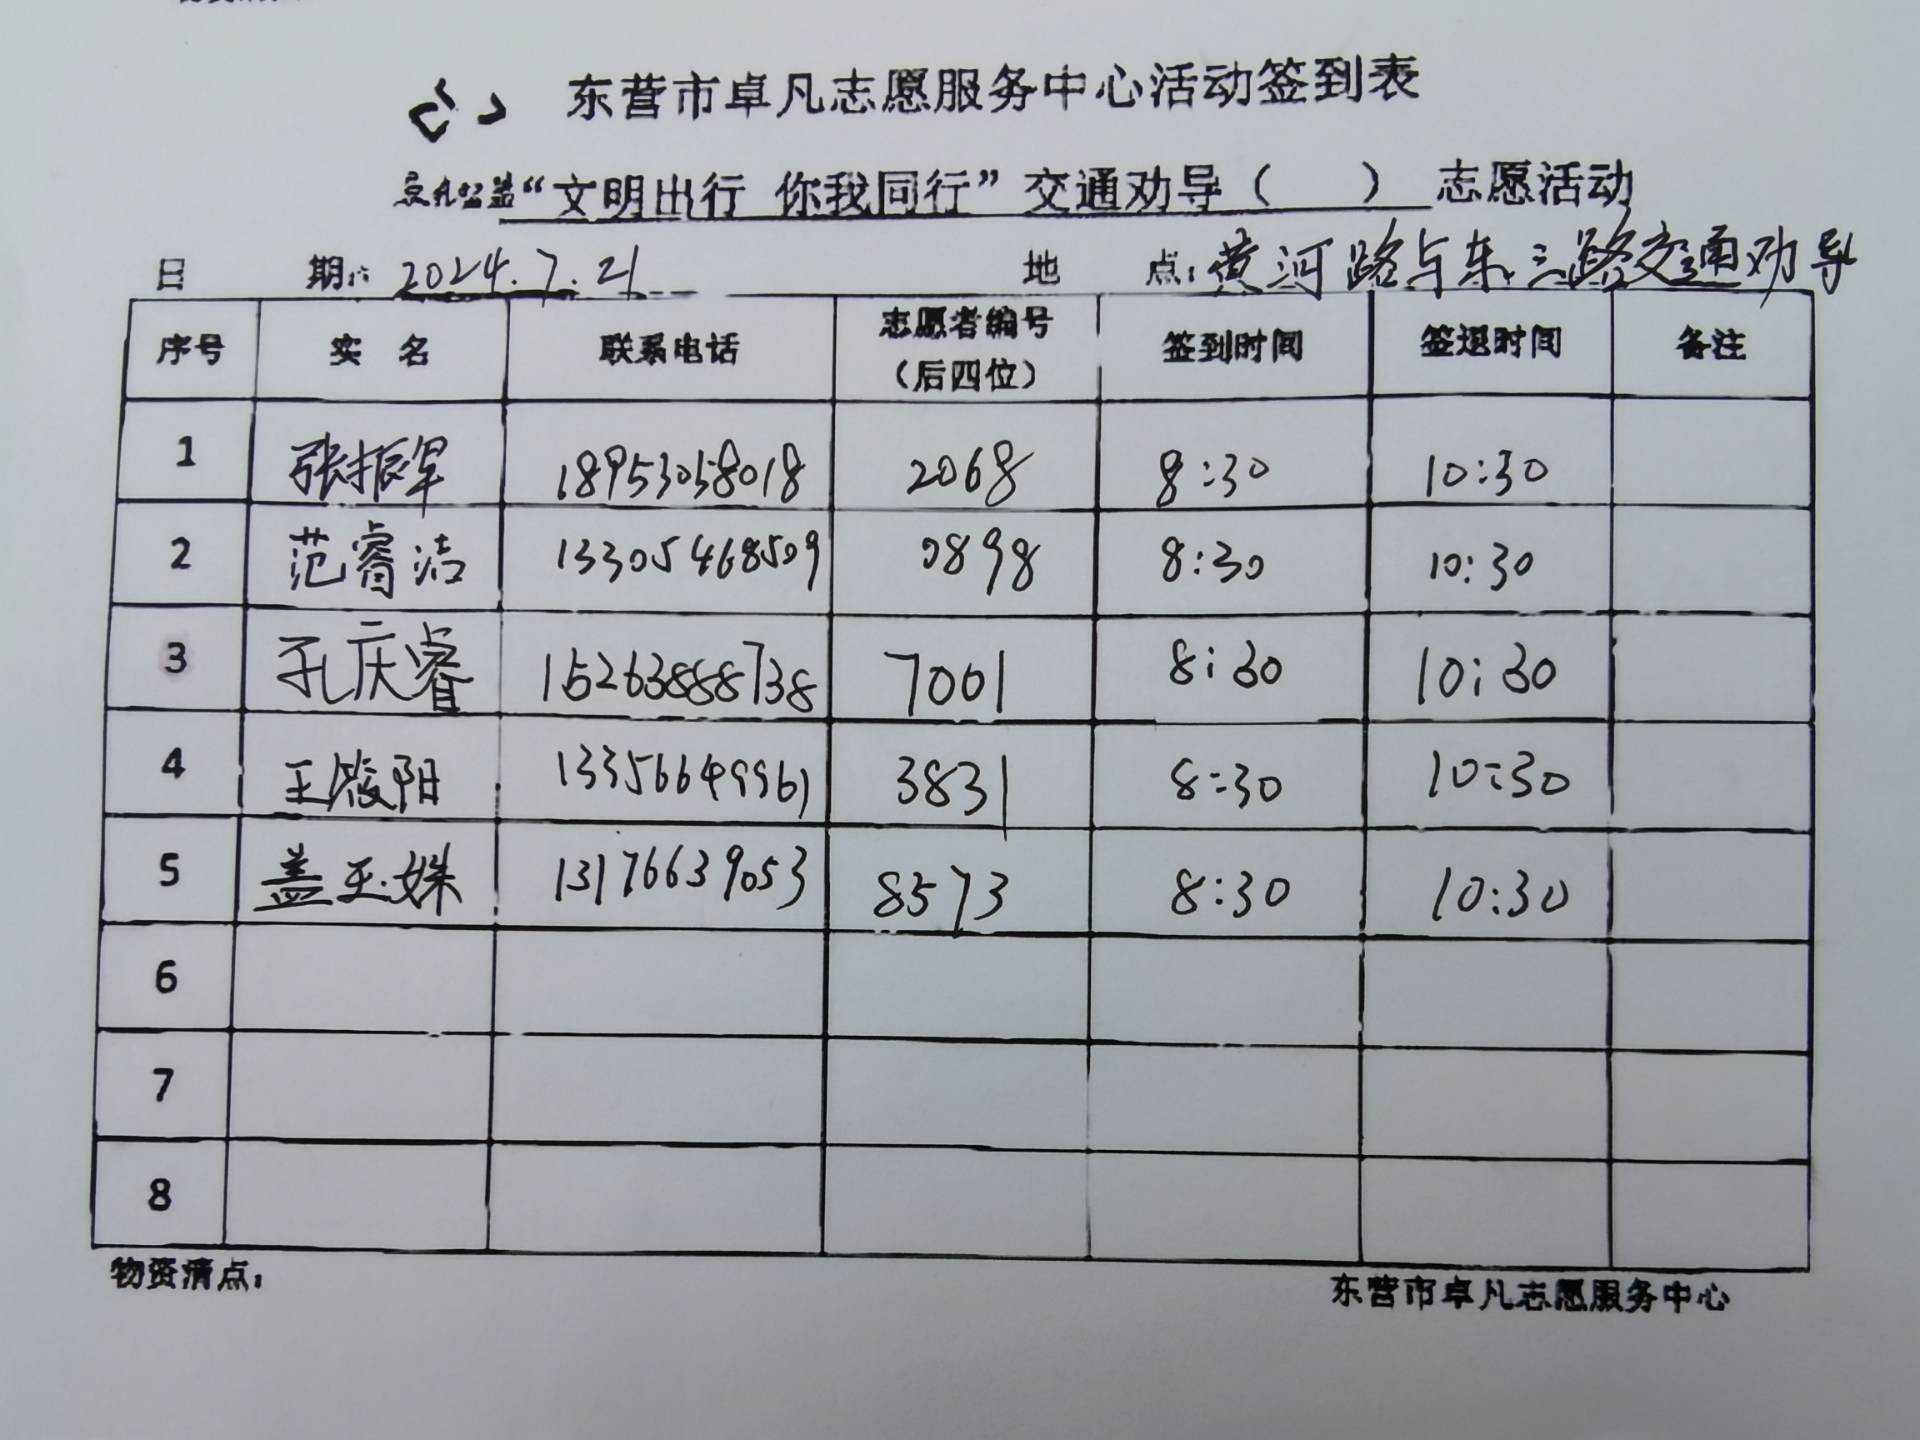 东营市卓凡志愿服务中心活动签到表
“文明出行 你我同行”交通劝导（ ）志愿活动
日 期： 2024.7.21 地 点：黄河路与东三路交通劝导
序号 实 名 联系电话 志愿者编号（后四位） 签到时间 签退时间 备注
1 张振军 18953058018 2068 8:30 10:30
2 范睿洁 13305468509 0898 8:30 10:30
3 孔庆睿 15263888738 7001 8:30 10:30
4 王阳 13356649961 3831 8:30 10:30
5 盖玉姝 13176639053 8573 8:30 10:30
6
7
8
物资清点：
东营市卓凡志愿服务中心